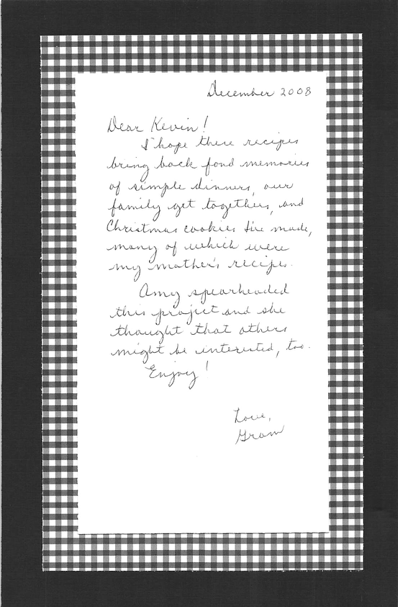 December 2008
Dear Kevin!
I hope these recipes
bring back fond memories
of simple dinners, our
family get togethers, and
Christmas cookies I've made,
many of which were
my mother's recipes.
Amy spearheaded
this project and she
thought that others
might be interested, too.
Enjoy!
Love,
Gram